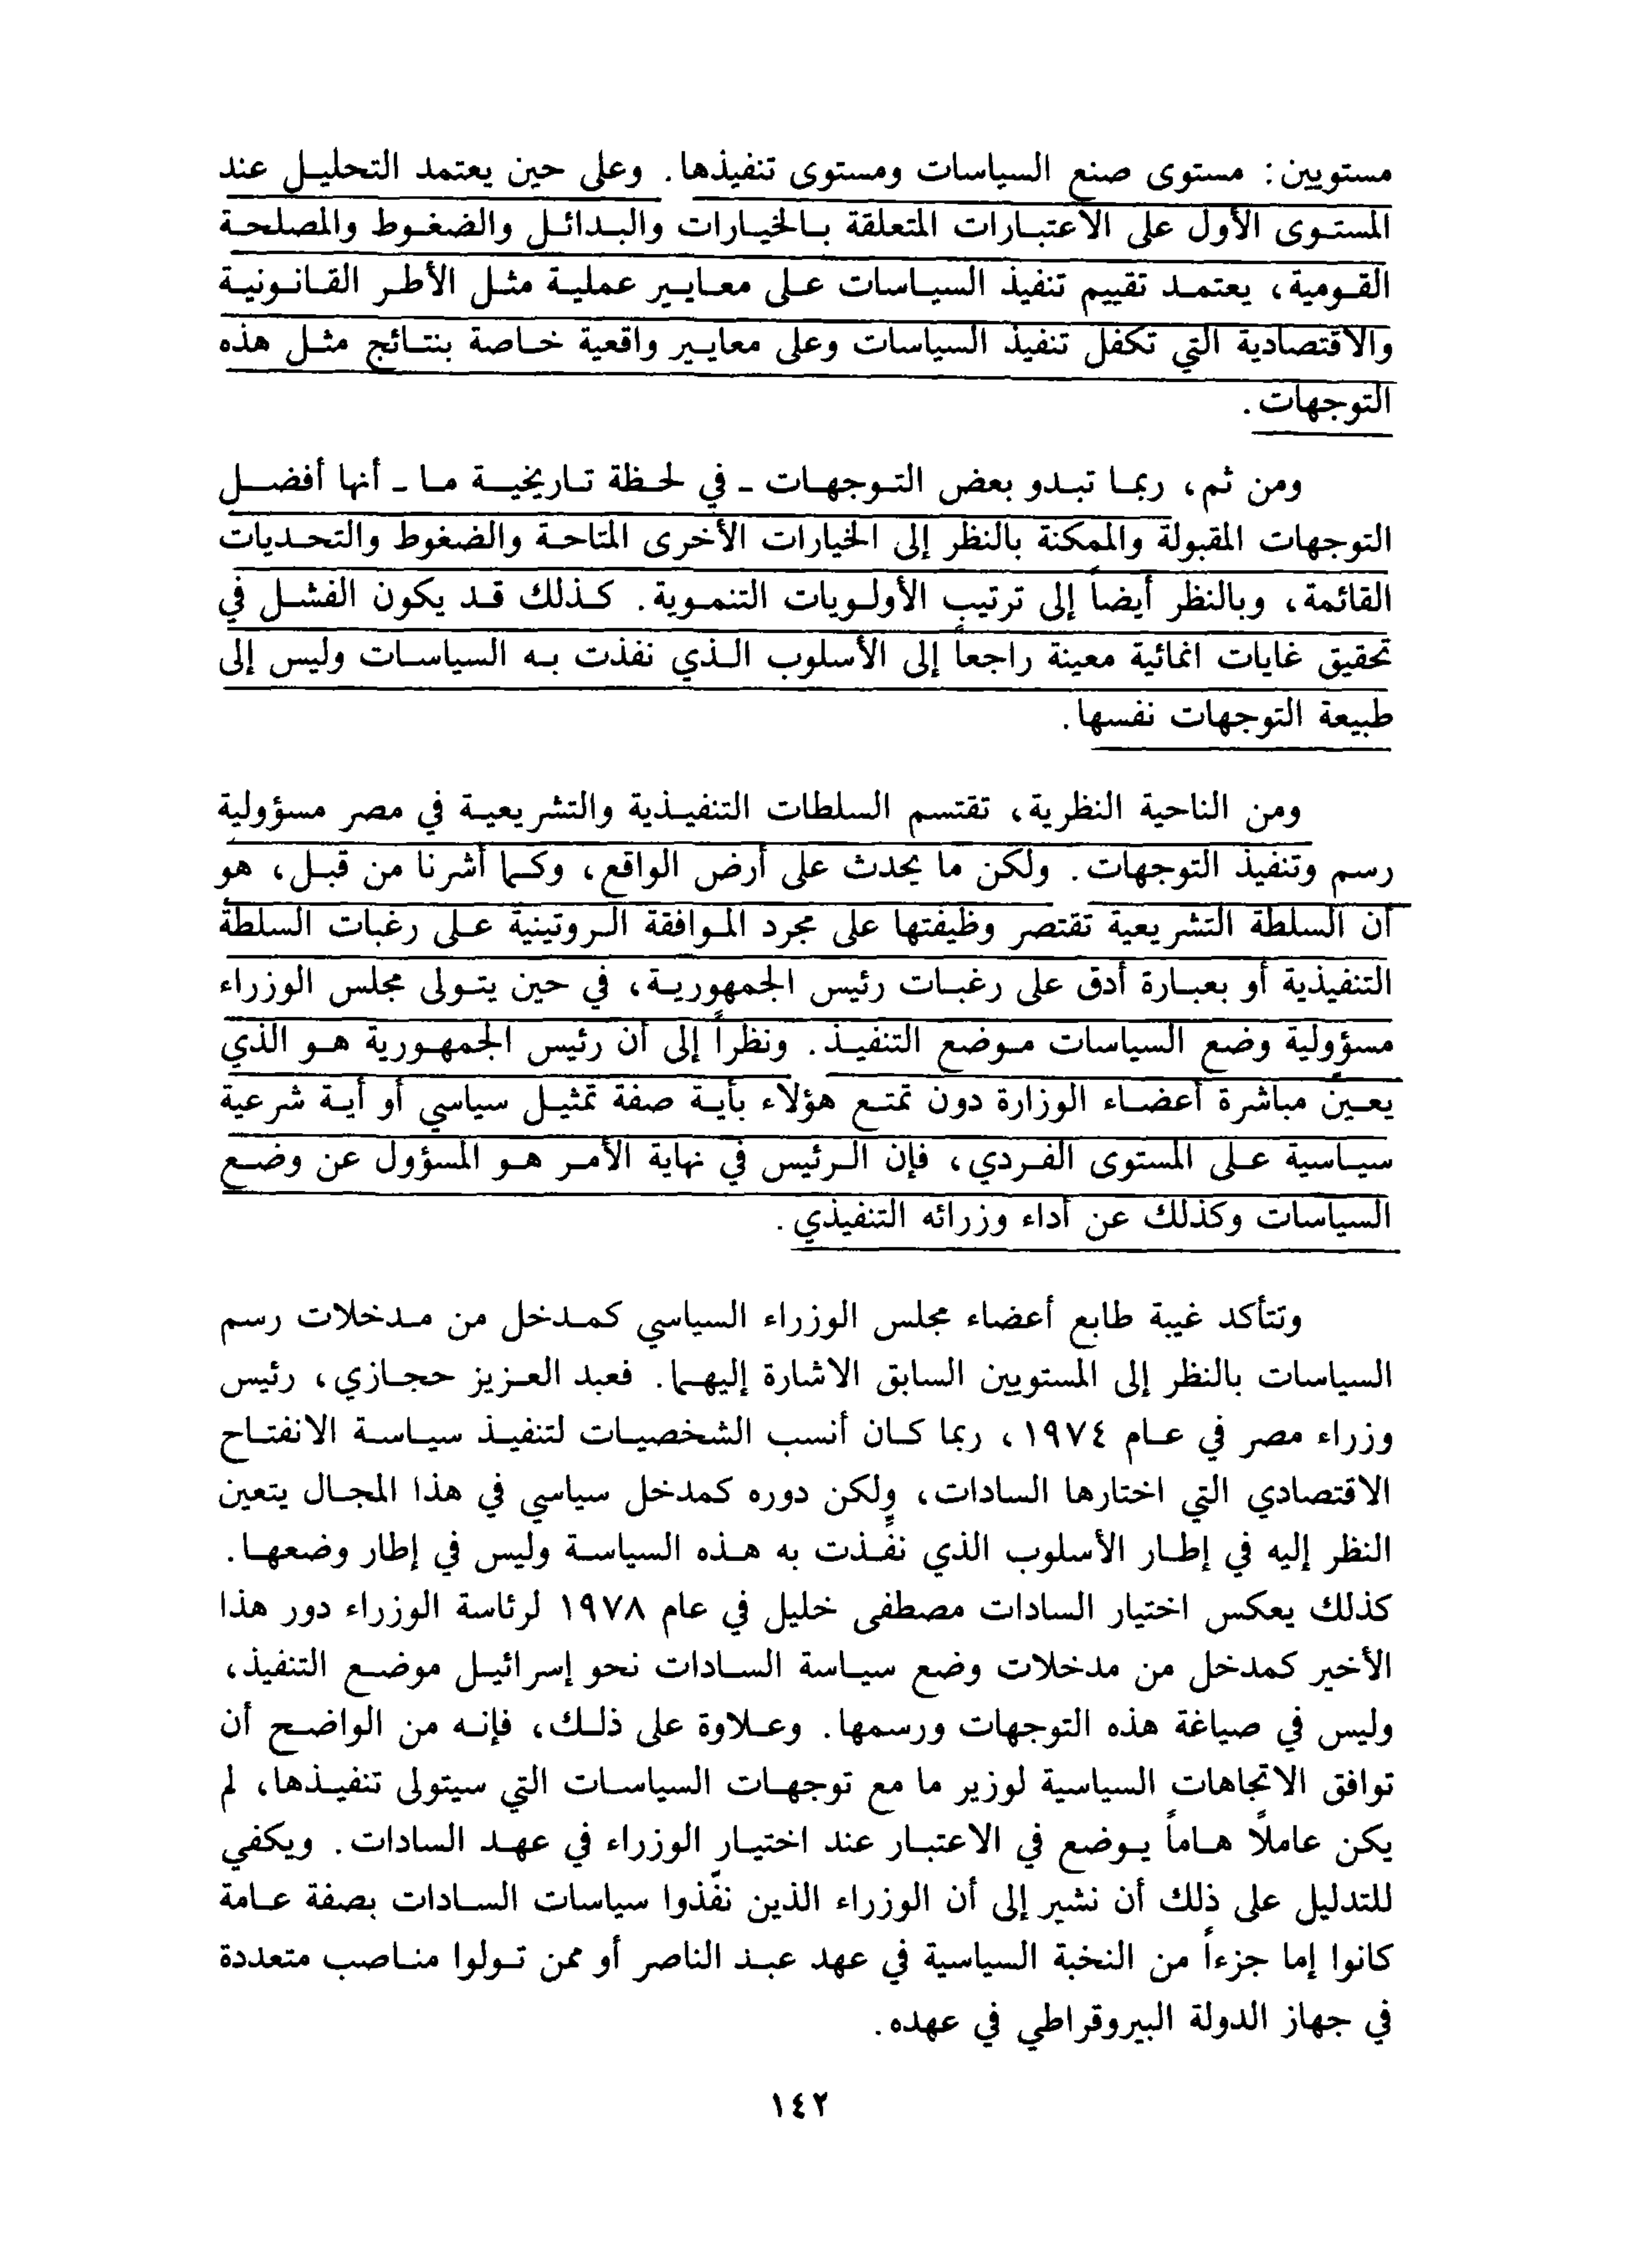 مستويين: مستوى صنع السياسات ومستوى تنفيذها. وعلى حين يعتمد التحليل عند
المستوى الأول على الاعتبارات المتعلقة بالخيارات والبدائل والضغوط والمصلحة
القومية، يعتمد تقييم تنفيذ السياسات على معايير عملية مثل الأطر القانونية
والاقتصادية التي تكفل تنفيذ السياسات وعلى معايير واقعية خاصة بنتائج مثل هذه
التوجهات.
ومن ثم، ربما تبدو بعض التوجهات - في لحظة تاريخية ما - أنها أفضل
التوجهات المقبولة والممكنة بالنظر إلى الخيارات الأخرى المتاحة والضغوط والتحديات
القائمة، وبالنظر أيضاً إلى ترتيب الأولويات التنموية. كذلك قد يكون الفشل في
تحقيق غايات انمائية معينة راجعاً إلى الأسلوب الذي نفذت به السياسات وليس إلى
طبيعة التوجهات نفسها.
ومن الناحية النظرية، تقتسم السلطات التنفيذية والتشريعية في مصر مسؤولية
رسم وتنفيذ التوجهات. ولكن ما يحدث على أرض الواقع، وكما أشرنا من قبل، هو
أن السلطة التشريعية تقتصر وظيفتها على مجرد الموافقة الروتينية على رغبات السلطة
التنفيذية أو بعبارة أدق على رغبات رئيس الجمهورية، في حين يتولى مجلس الوزراء
مسؤولية وضع السياسات موضع التنفيذ. ونظراً إلى أن رئيس الجمهورية هو الذي
يعين مباشرة أعضاء الوزارة دون تمتع هؤلاء بأية صفة تمثيل سياسي أو أية شرعية
سياسية على المستوى الفردي، فإن الرئيس في نهاية الأمر هو المسؤول عن وضع
السياسات وكذلك عن أداء وزرائه التنفيذي.
وتتأكد غيبة طابع أعضاء مجلس الوزراء السياسي كمدخل من مدخلات رسم
السياسات بالنظر إلى المستويين السابق الاشارة إليهما. فعبد العزيز حجازي، رئيس
وزراء مصر في عام ١٩٧٤، ربما كان أنسب الشخصيات لتنفيذ سياسة الانفتاح
الاقتصادي التي اختارها السادات، ولكن دوره كمدخل سياسي في هذا المجال يتعين
النظر إليه في إطار الأسلوب الذي نفِّذت به هذه السياسة وليس في إطار وضعها.
كذلك يعكس اختيار السادات مصطفى خليل في عام ١٩٧٨ لرئاسة الوزراء دور هذا
الأخير كمدخل من مدخلات وضع سياسة السادات نحو إسرائيل موضع التنفيذ،
وليس في صياغة هذه التوجهات ورسمها. وعلاوة على ذلك، فإنه من الواضح أن
توافق الاتجاهات السياسية لوزير ما مع توجهات السياسات التي سيتولى تنفيذها، لم
يكن عاملاً هاماً يوضع في الاعتبار عند اختيار الوزراء في عهد السادات. ويكفي
للتدليل على ذلك أن نشير إلى أن الوزراء الذين نفّذوا سياسات السادات بصفة عامة
كانوا إما جزءاً من النخبة السياسية في عهد عبد الناصر أو ممن تولوا مناصب متعددة
في جهاز الدولة البيروقراطي في عهده.
١٤٢